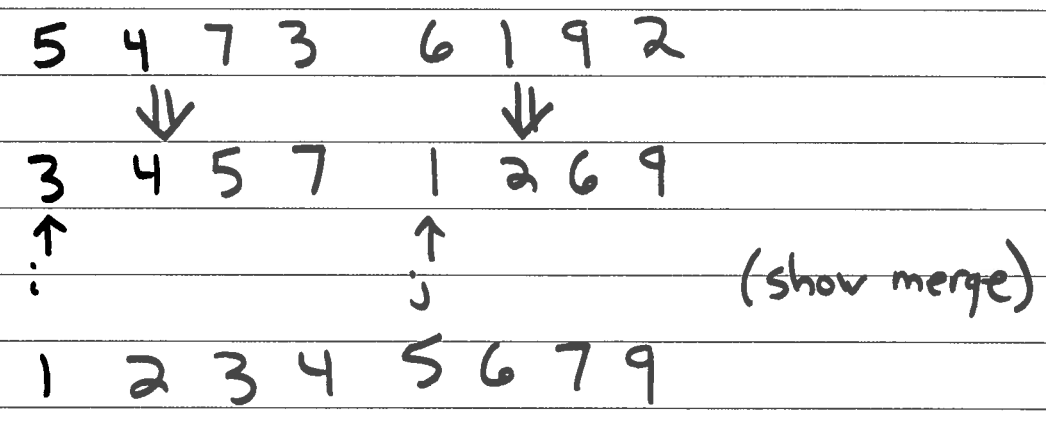 5 4 7 3 6 1 9 2
⇓ ⇓
3 4 5 7 1 2 6 9
↑ ↑
i j (show merge)
1 2 3 4 5 6 7 9